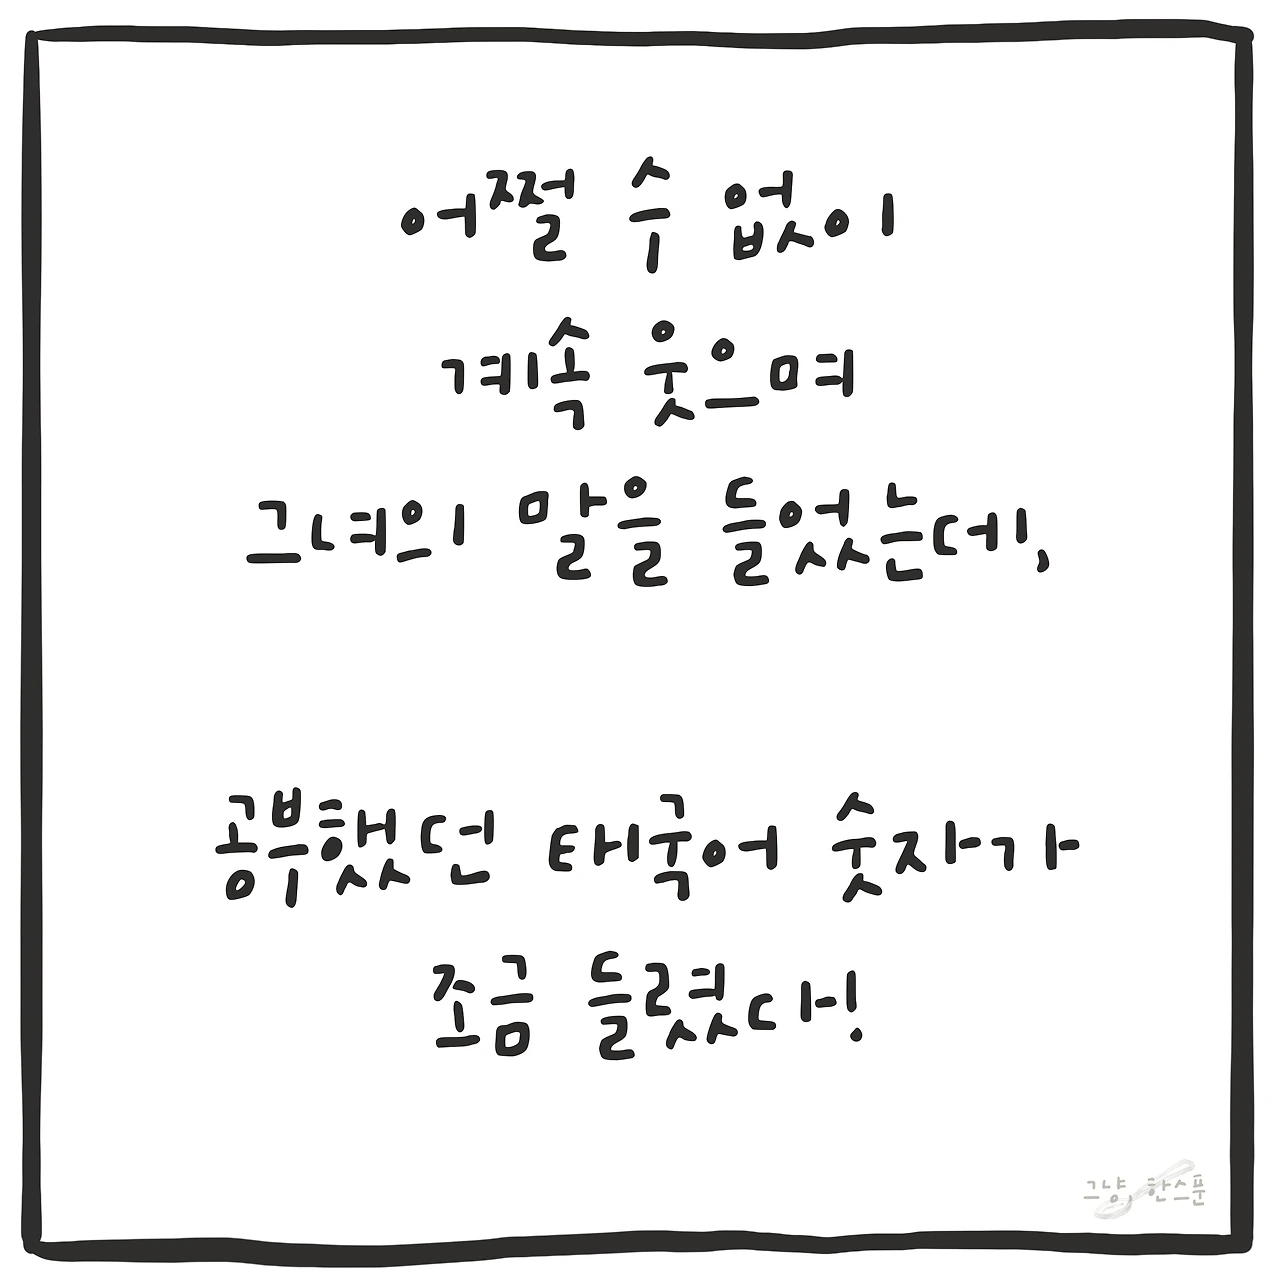 어쩔 수 없이
계속 웃으며
그녀의 말을 들었는데,
공부했던 태국어 숫자가
조금 들렸다!
그냥, 한스푼